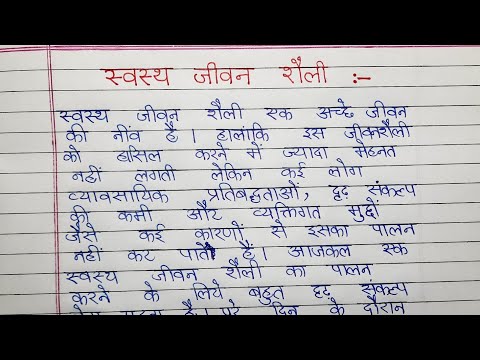 स्वस्थ जीवन शैली :-
स्वस्थ जीवन शैली एक अच्छे जीवन
की नींव है । हालाकि इस जीवनशैली
को हासिल करने में ज्यादा मेहनत
नहीं लगती लेकिन कई लोग
व्यावसायिक प्रतिबद्धताओं, दृढ़ संकल्प
की कमी और व्यक्तिगत मुद्दों
जैसे कई कारणों से इसका पालन
नहीं कर पाते हैं । आजकल एक
स्वस्थ जीवन शैली का पालन
करने के लिये बहुत दृढ़ संकल्प
दिन के दौरान